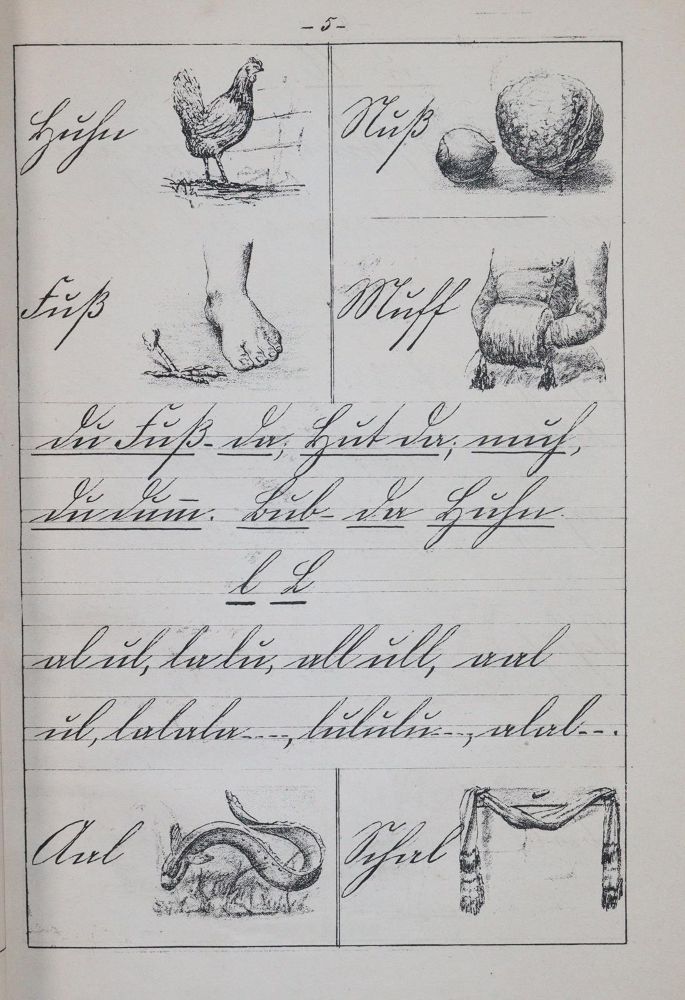 - 5 -
Huhn
Nuß
Fuß
Muff
du Fuß - da, Hut da, muh,
du dum̅. Bub - da Huhn.
l L
al ul, la lu, all ull, aal
ul, lalala---, lululu---, alal---.
Aal
Schal